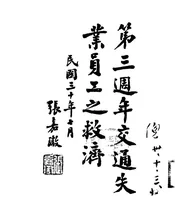 第三週年交通失
業員工之救濟
民國三十年七月
張嘉璈